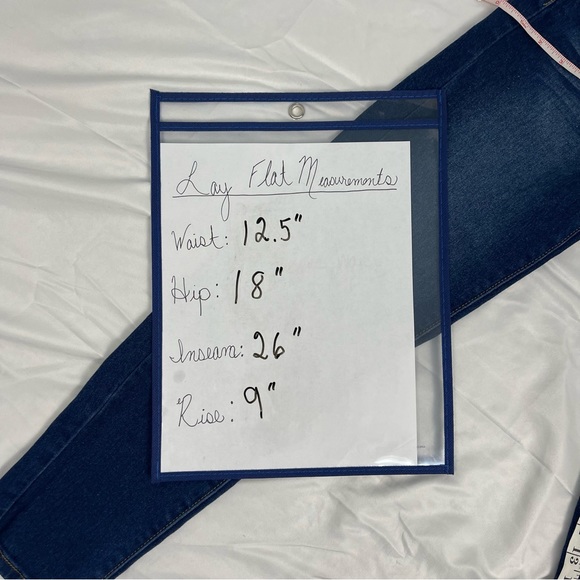 Lay Flat Measurements
Waist: 12.5"
Hip: 18"
Inseam: 26"
Rise: 9"